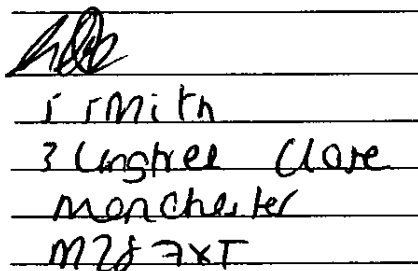 S Smith
3 Longtree Close
Manchester
M28 7XT